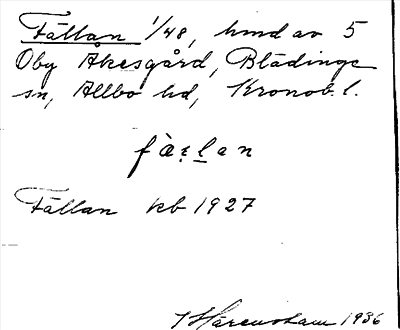 Fällan 1/48, hmd av 5
Oby Åkesgård, Blädinge
sn, Allbo hd, Kronob. l.
fæ̀ḷḷan
Fällan kb 1927
1936